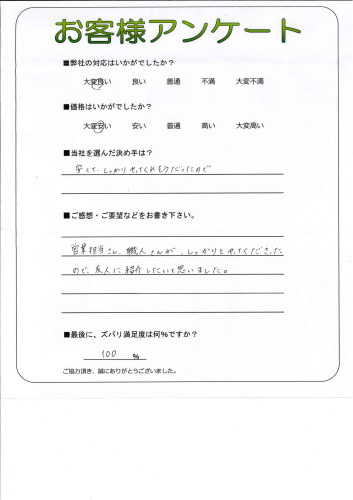 お客様アンケート
■弊社の対応はいかがでしたか？
大変良い　良い　普通　不満　大変不満
■価格はいかがでしたか？
大変安い　安い　普通　高い　大変高い
■当社を選んだ決め手は？
安くて、しっかりやってくれそうだったので
■ご感想・ご要望などをお書き下さい。
営業担当さん、職人さんが、しっかりとやってくださった
ので、友人に紹介したいと思いました。
■最後に、ズバリ満足度は何%ですか？
100 %
ご協力頂き、誠にありがとうございました。